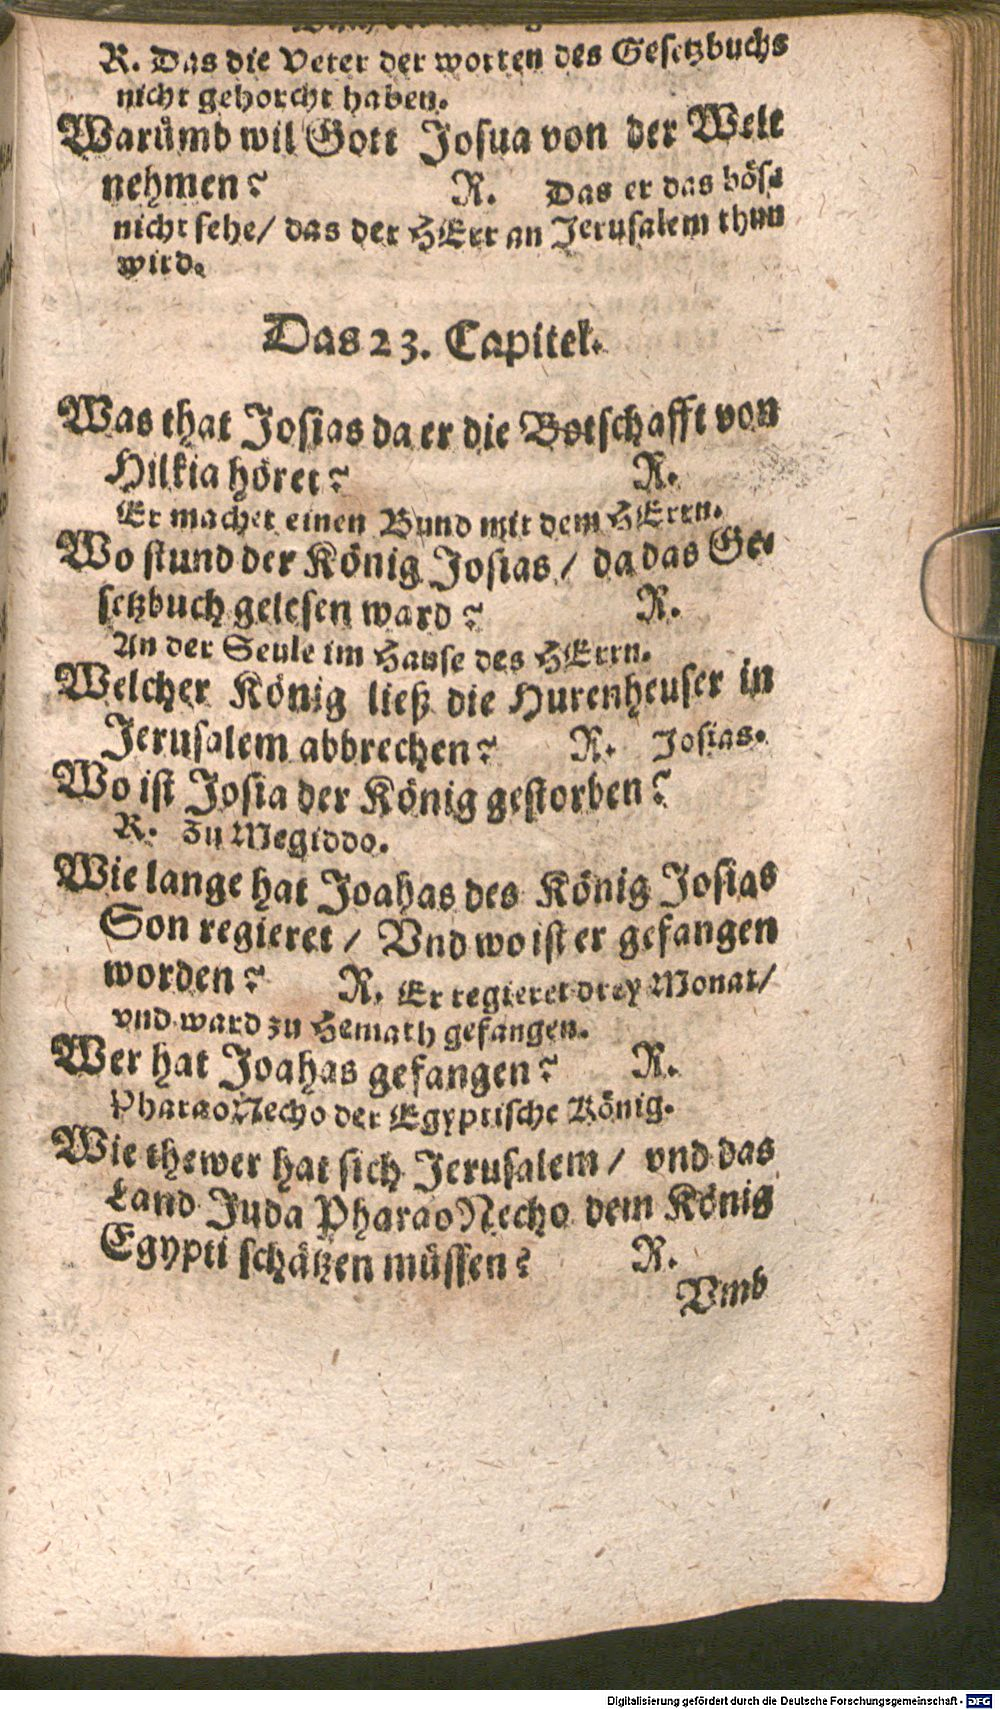 R. Das die Veter der worten des Gesetzbuchs
nicht gehorcht haben.
Warůmb wil Gott Josua von der Welt
nehmen? R. Das er das böse
nicht sehe/ das der HErr an Jerusalem thun
wird.
Das 23. Capitel.
Was that Josias da er die Botschafft von
Hilkia höret? R.
Er machet einen Bund mit dem HErrn.
Wo stund der König Josias / da das Ge-
setzbuch gelesen ward? R.
An der Seule im Hause des HErrn.
Welcher König ließ die Hurenheuser in
Jerusalem abbrechen? R. Josias.
Wo ist Josia der König gestorben?
R. Zu Megiddo.
Wie lange hat Joahas des König Josias
Son regieret / Vnd wo ist er gefangen
worden? R. Er regieret drey Monat/
vnd ward zu Hemath gefangen.
Wer hat Joahas gefangen? R.
Pharao Necho der Egyptische König.
Wie thewer hat sich Jerusalem / vnd das
Land Juda Pharao Necho dem König
Egypti schätzen müssen? R.
Vmb
Digitalisierung gefördert durch die Deutsche Forschungsgemeinschaft - DFG